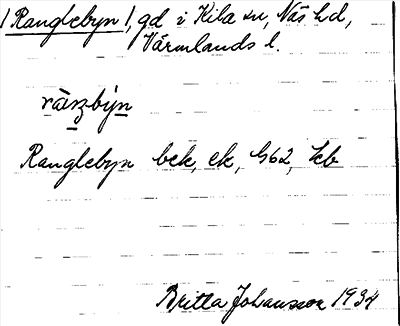 /Ranglebyn/, gd i Kila sn, Näs hd,
Värmlands l.
Ranglebyn bek, ek, G62, kb
Britta Johansson 1934